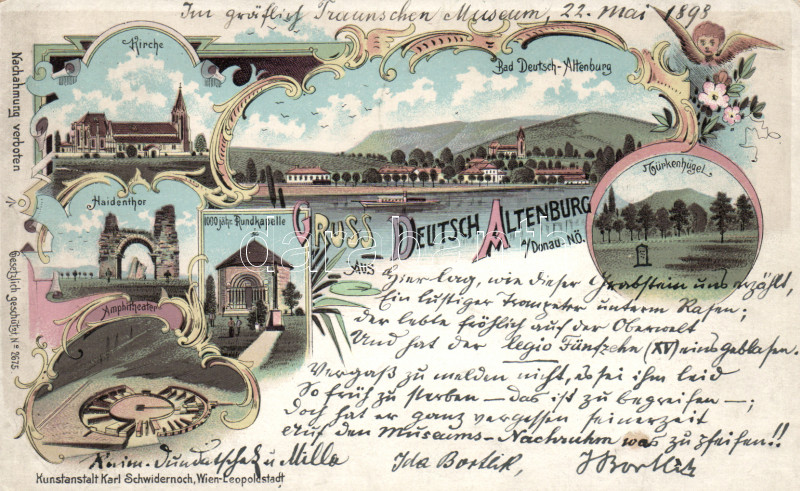 Im gräflich Traunschen Museum, 22. Mai 1898
Kirche
Bad Deutsch-Altenburg
Nachahmung verboten
Haidenthor
1000 jähr. Rundkapelle
Türkenhügel
Gruss
aus
Deutsch Altenburg
a/Donau-NÖ.
Gesetzlich geschützt No 2675
Amphitheater
Hier lag, wie dieser Grabstein uns erzählt,
Ein lustiger Trompeter unterm Rasen;
der lebte fröhlich auf der Oberwelt
Und hat der legio Fünfzehn (XV) eins geblasen.
Vergaß zu melden nicht, es sei ihm leid
So früh zu sterben – das ist zu begreifen –;
Doch hat er ganz vergessen seinerzeit
Auf den Museums-Nachruhm was zu pfeifen!!
u Milla Ida Bortlik,
Kunstanstalt Karl Schwidernoch, Wien-Leopoldstadt
darabanth.com